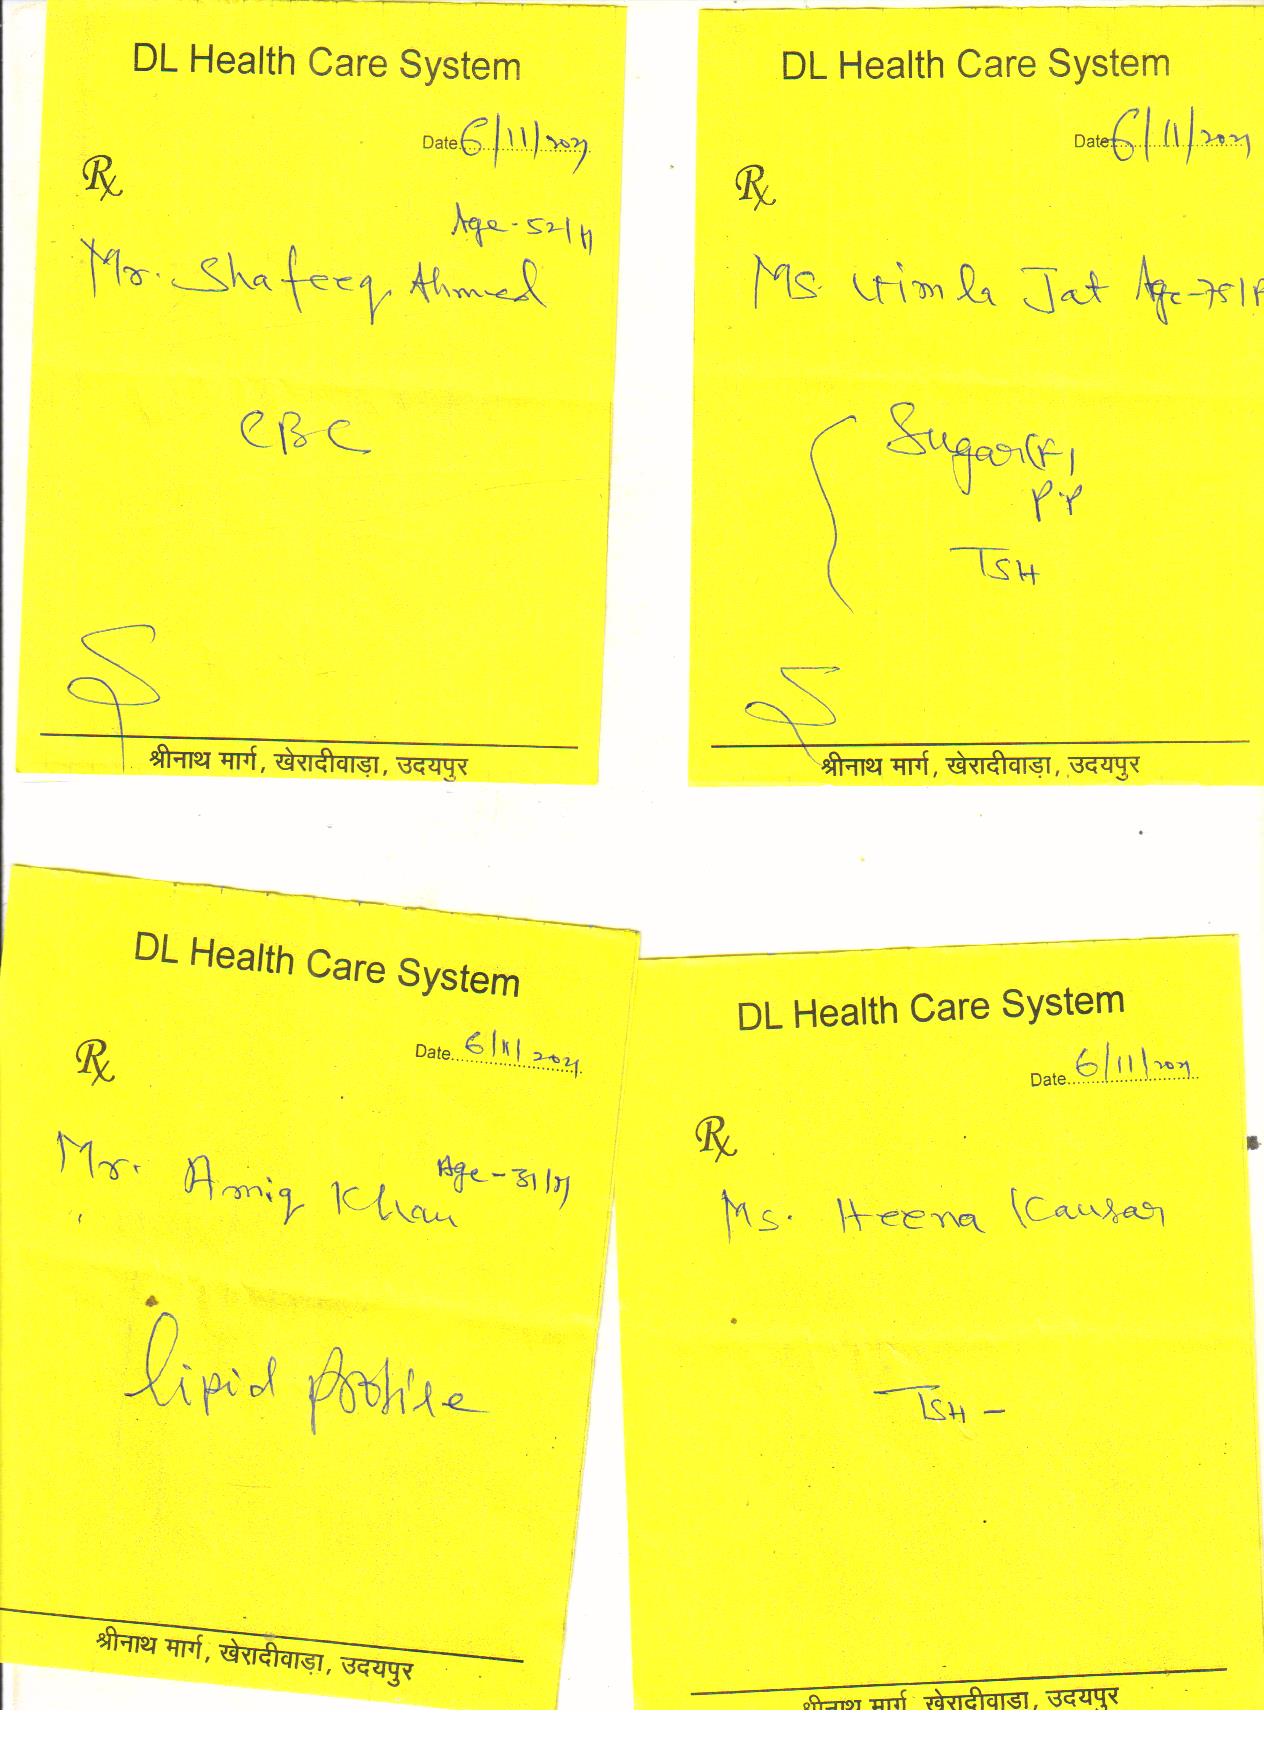 DL Health Care System
Date 6/11/2021
Rx
Age - 52/M
Mr. Shafeeq Ahmed
CBC
श्रीनाथ मार्ग, खेरादीवाड़ा, उदयपुर
DL Health Care System
Date 6/11/2021
Rx
Ms. Vimla Jat Age - 75/F
Sugar (F)
P.P
TSH
श्रीनाथ मार्ग, खेरादीवाड़ा, उदयपुर
DL Health Care System
Date 6/11/2021
Rx
Age - 31/M
Mr. Amiq Khan
lipid profile
श्रीनाथ मार्ग, खेरादीवाड़ा, उदयपुर
DL Health Care System
Date 6/11/2021
Rx
Ms. Heena Kausar
TSH -
श्रीनाथ मार्ग, खेरादीवाड़ा, उदयपुर